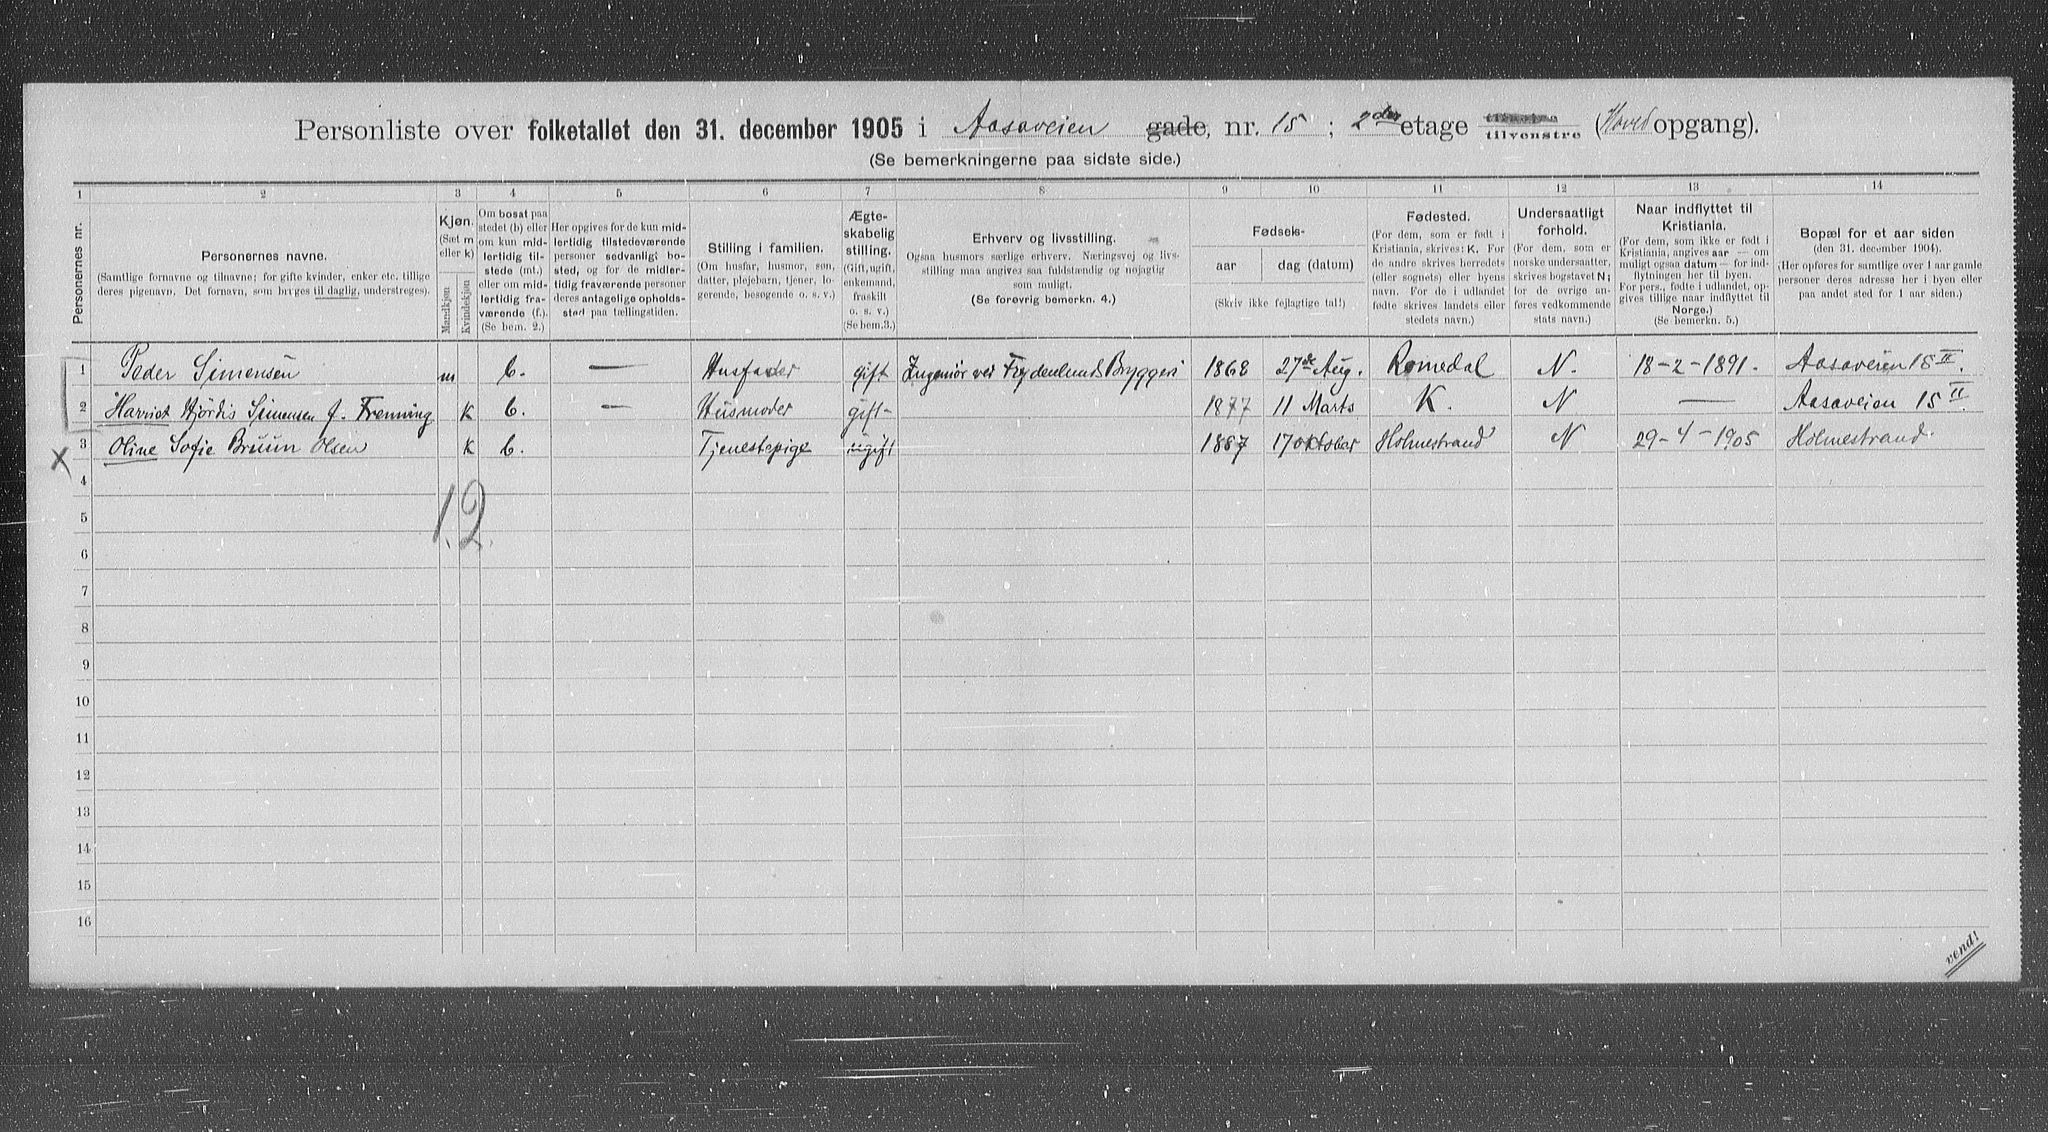 Personliste over folketallet den 31. december 1905 i Aasaveien gade, nr. 15; 2den etage tilvenstre (Hoved opgang).
(Se bemerkningerne paa sidste side.)
1 2 3 4 5 6 7 8 9 10 11 12 13 14
Personernes nr.
Personernes navne.
(Samtlige fornavne og tilnavne; for gifte kvinder, enker etc. tillige
deres pigenavn. Det fornavn, som bruges til daglig, understreges).
Kjøn.
(Sæt m
eller k)
Mandkjøn
Kvindekjøn
Om bosat paa
stedet (b) eller
om kun mid-
lertidig til-
stede (mt.)
eller om mid-
lertidig fra-
værende (f.).
(Se bem. 2.)
Her opgives for de kun mid-
lertidig tilstedeværende
personer sedvanlig bo-
sted, og for de midler-
tidig fraværende personer
deres antagelige opholds-
sted paa tællingstiden.
Stilling i familien.
(Om husfar, husmor, søn,
datter, plejebarn, tjener, lo-
gerende, besøgende o. s. v.)
Ægte-
skabelig
stilling.
(Gift, ugift,
enkemand,
fraskilt
o. s. v.)
(Se bem. 3.)
Erhverv og livsstilling.
Ogsaa husmors særlige erhverv. Næringsvej og livs-
stilling maa angives saa fuldstændig og nøjagtig
som muligt.
(Se forøvrig bemerkn. 4.)
Fødsels-
aar
dag (datum)
(Skriv ikke fejlagtige tal!)
Fødested.
(For dem, som er født i
Kristiania, skrives: K. For
de andre skrives herredets
(eller sognets) eller byens
navn. For de i udlandet
fødte skrives landets eller
stedets navn.)
Undersaatligt
forhold.
(For dem, som er
norske undersaatter,
skrives bogstavet N;
for de øvrige an-
føres vedkommende
stats navn.)
Naar indflyttet til
Kristiania.
(For dem, som ikke er født i
Kristiania, angives aar — om
muligt ogsaa datum — for ind-
flytningen her til byen.
For pers., fødte i udlandet, op-
gives tillige naar indflyttet til
Norge.)
(Se bemerkn. 5.)
Bopæl for et aar siden
(den 31. december 1904).
(Her opføres for samtlige over 1 aar gamle
personer deres adresse her i byen eller
paa andet sted for 1 aar siden.)
1 Peder Simensen m b. — Husfader gift Ingeniør ved Frydenlunds Bryggeri 1868 27de Aug. Romedal N. 18-2-1891. Aasaveien 15 II.
2 Harriot Hjördis Simensen f. Frenning k b. — Husmoder gift- 1877 11 Marts K. N — Aasaveien 15 II.
X 3 Oline Sofie Bruun Olsen k b. Tjenestepige ugift 1887 17 oktober Holmestrand N 29-4-1905 Holmestrand.
4
1.2.
5
6
7
8
9
10
11
12
13
14
15
16
vend!